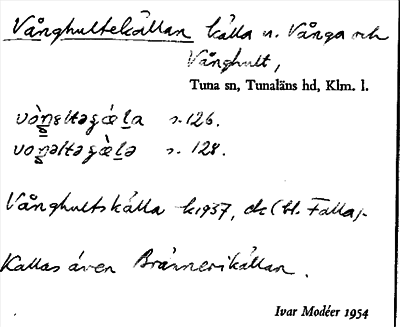 Vånghultekällan källa n. Vånga och
Vånghult,
Tuna sn, Tunaläns hd, Klm. l.
s. 126.
s. 128.
Vånghultskälla k1937, ek (bl. Falla).
Kallas även Brännerikällan.
Ivar Modéer 1954